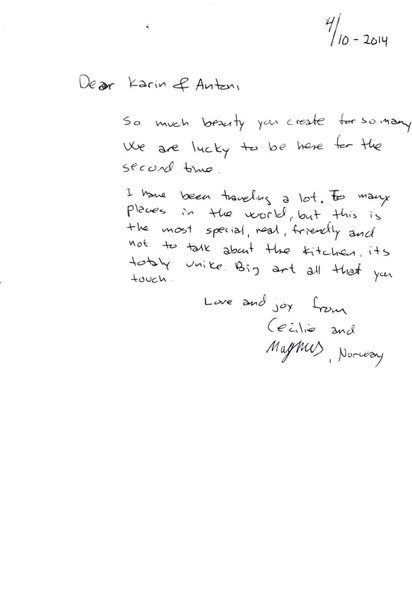 4/10-2014
Dear Karin & Antoni
So much beauty you create for so many
We are lucky to be here for the
second time.
I have been traveling a lot. To many
places in the world, but this is
the most special, real, friendly and
not to talk about the kitchen, its
totaly unike. Big art all that you
touch.
Love and joy from
Cecilie and
Magnus, Norway